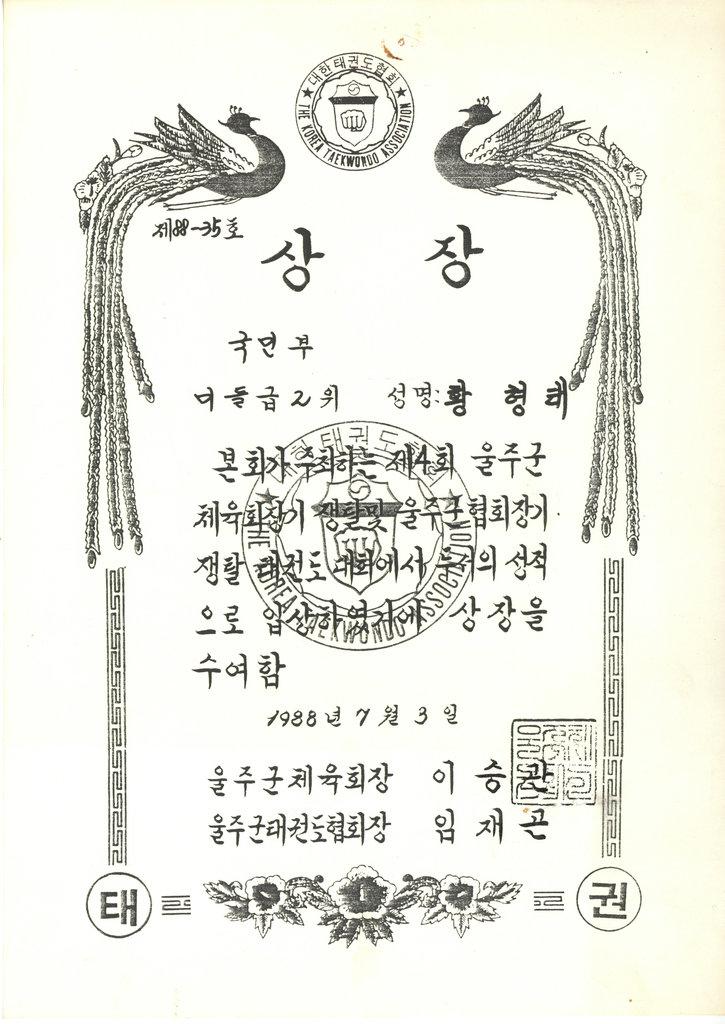 대한태권도협회
THE KOREA TAEKWONDO ASSOCIATION
제88-35호
상 장
국민부
미들급 2위 성명: 황 형 태
대한태권도
본회가 주최하는 제4회 울주군
체육회장기 쟁탈및 울주군협회장기
쟁탈 태권도 대회에서 두서의 성적
으로 입상하였기에 상장을
THE KOREA TAEKWONDO ASSOCIATION
수여함
1988년 7월 3일
울주군체육회장 이 승 관
울주군태권도협회장 임 재 곤
태 권